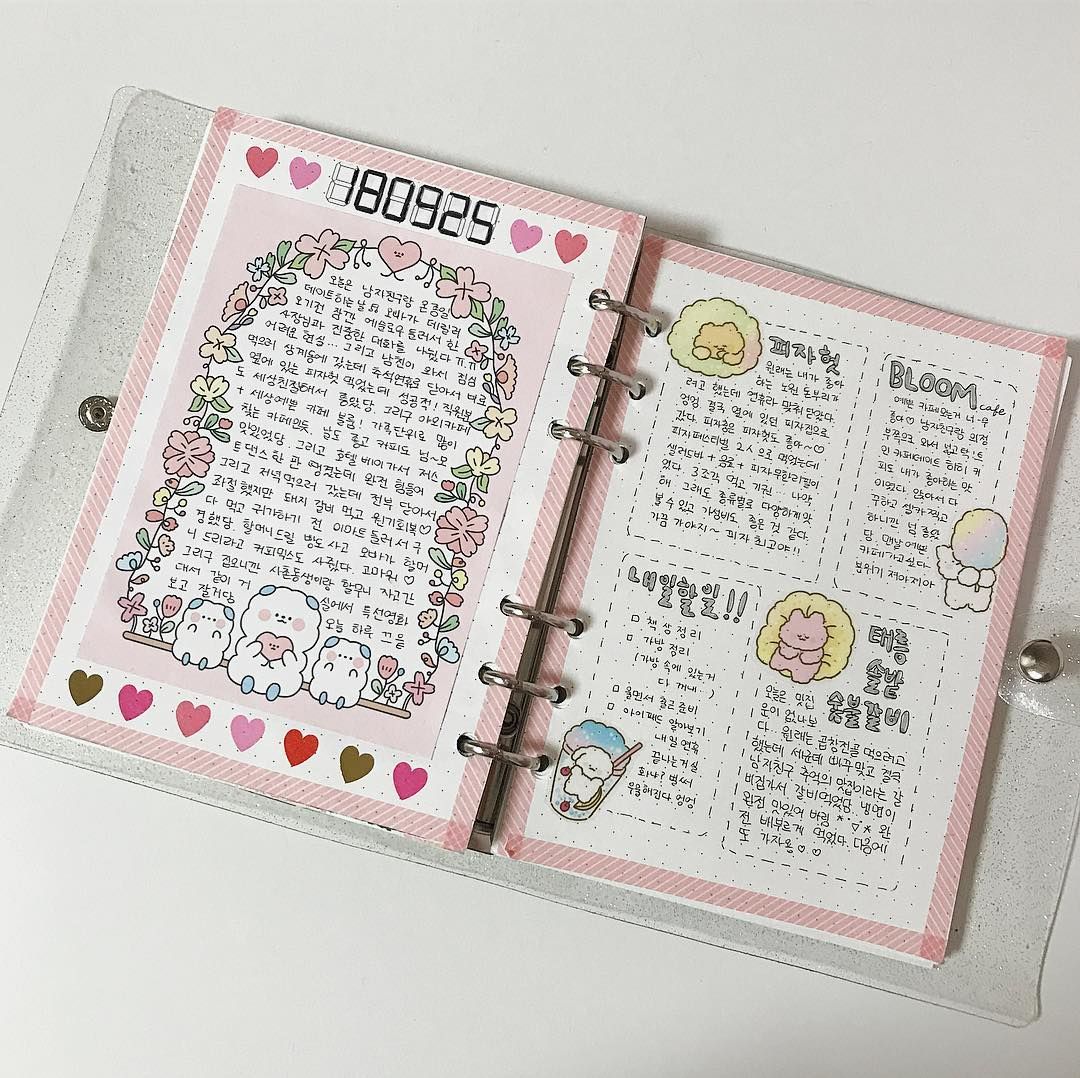 180925
오늘은 남자친구랑 온종일
데이트하는날 오빠가 데릴러
오기전 잠깐 에슬로우 들러서 한
사장님과 진중한 대화를 나눴다 ㅠㅠ
어려운 현실... 그리고 남친이 와서 점심
먹으러 상계동에 갔는데 추석연휴로 닫아서 바로
옆에 있는 피자헛 먹었는데 성공적! 직원분
도 세상친절해서 좋았당. 그리구 야외카페
+ 세상예쁜 카페 블룸! 가족단위로 많이
찾는 카페인듯 날도 좋고 커피도 넘~모
맛있었당. 그리고 호텔 베이가서 저스
트댄스 한 판 땡겼는데 완전 힘들어
그리고 저녁먹으러 갔는데 전부 닫아서
좌절했지만 돼지 갈비 먹고 원기회복♡
다 먹고 귀가하기 전 이마트 들러서 구
경했당. 할머니드릴 빵도 사고 오빠가 할머
니 드리라고 커피믹스도 사줬다. 고마워♡
그리구 집오니깐 사촌동생이랑 할무니 자고간
대서 같이 거실에서 특선영화
보고 잘거당 오늘 하루 끄읕
피자헛
원래는 내가 좋아
하는 노원 돈부리가
려고 했는데 연휴라 맞춰 닫았다.
엉엉 결국 옆에 있던 피자집으로
갔다. 피자중은 피자헛도 좋아~♡
피자페스티벌 2人으로 먹었는데
샐러드바 + 음료 + 피자무한리필이
였다. 3조각 먹고 기권... 나약
해. 그래도 종류별로 다양하게 맛
볼 수 있고 가성비도 좋은 것 같다.
가끔 가야지~ 피자 최고야!!
BLOOM cafe
예쁜 카페오는거 너-무
좋아♡ 남자친구랑 의정
부쪽으로 와서 넓고 탁!트
인 카페데이트 히히 커
피도 내가 좋아하는 맛
이었다. 앉아서 다
꾸하고 셀카 찍고
하니깐 넘 좋았
당. 맨날 예쁜
카페가고싶다.
분위기 져아져아
내일할일!!
□ 책상정리
□ 가방 정리
(가방 속에 있는거
다 꺼내..)
□ 울면서 출근 준비
□ 아이패드 알아보기
내일 연휴
끝나는거 실
화냐? 벌써
우울해진다 엉엉
태릉
솔밭
숯불갈비
오늘은 맛집
운이 없나본
다. 원래는 곱창전골 먹으려고
했는데 세군데 빠꾸맞고 결국
남자친구 추억의 맛집이라는 갈
비집가서 갈비먹었당. 냉면이
완전 맛있어 버림 *˙▽˙* 완
전 배부르게 먹었다. 다음에
또 가자옹♡♡